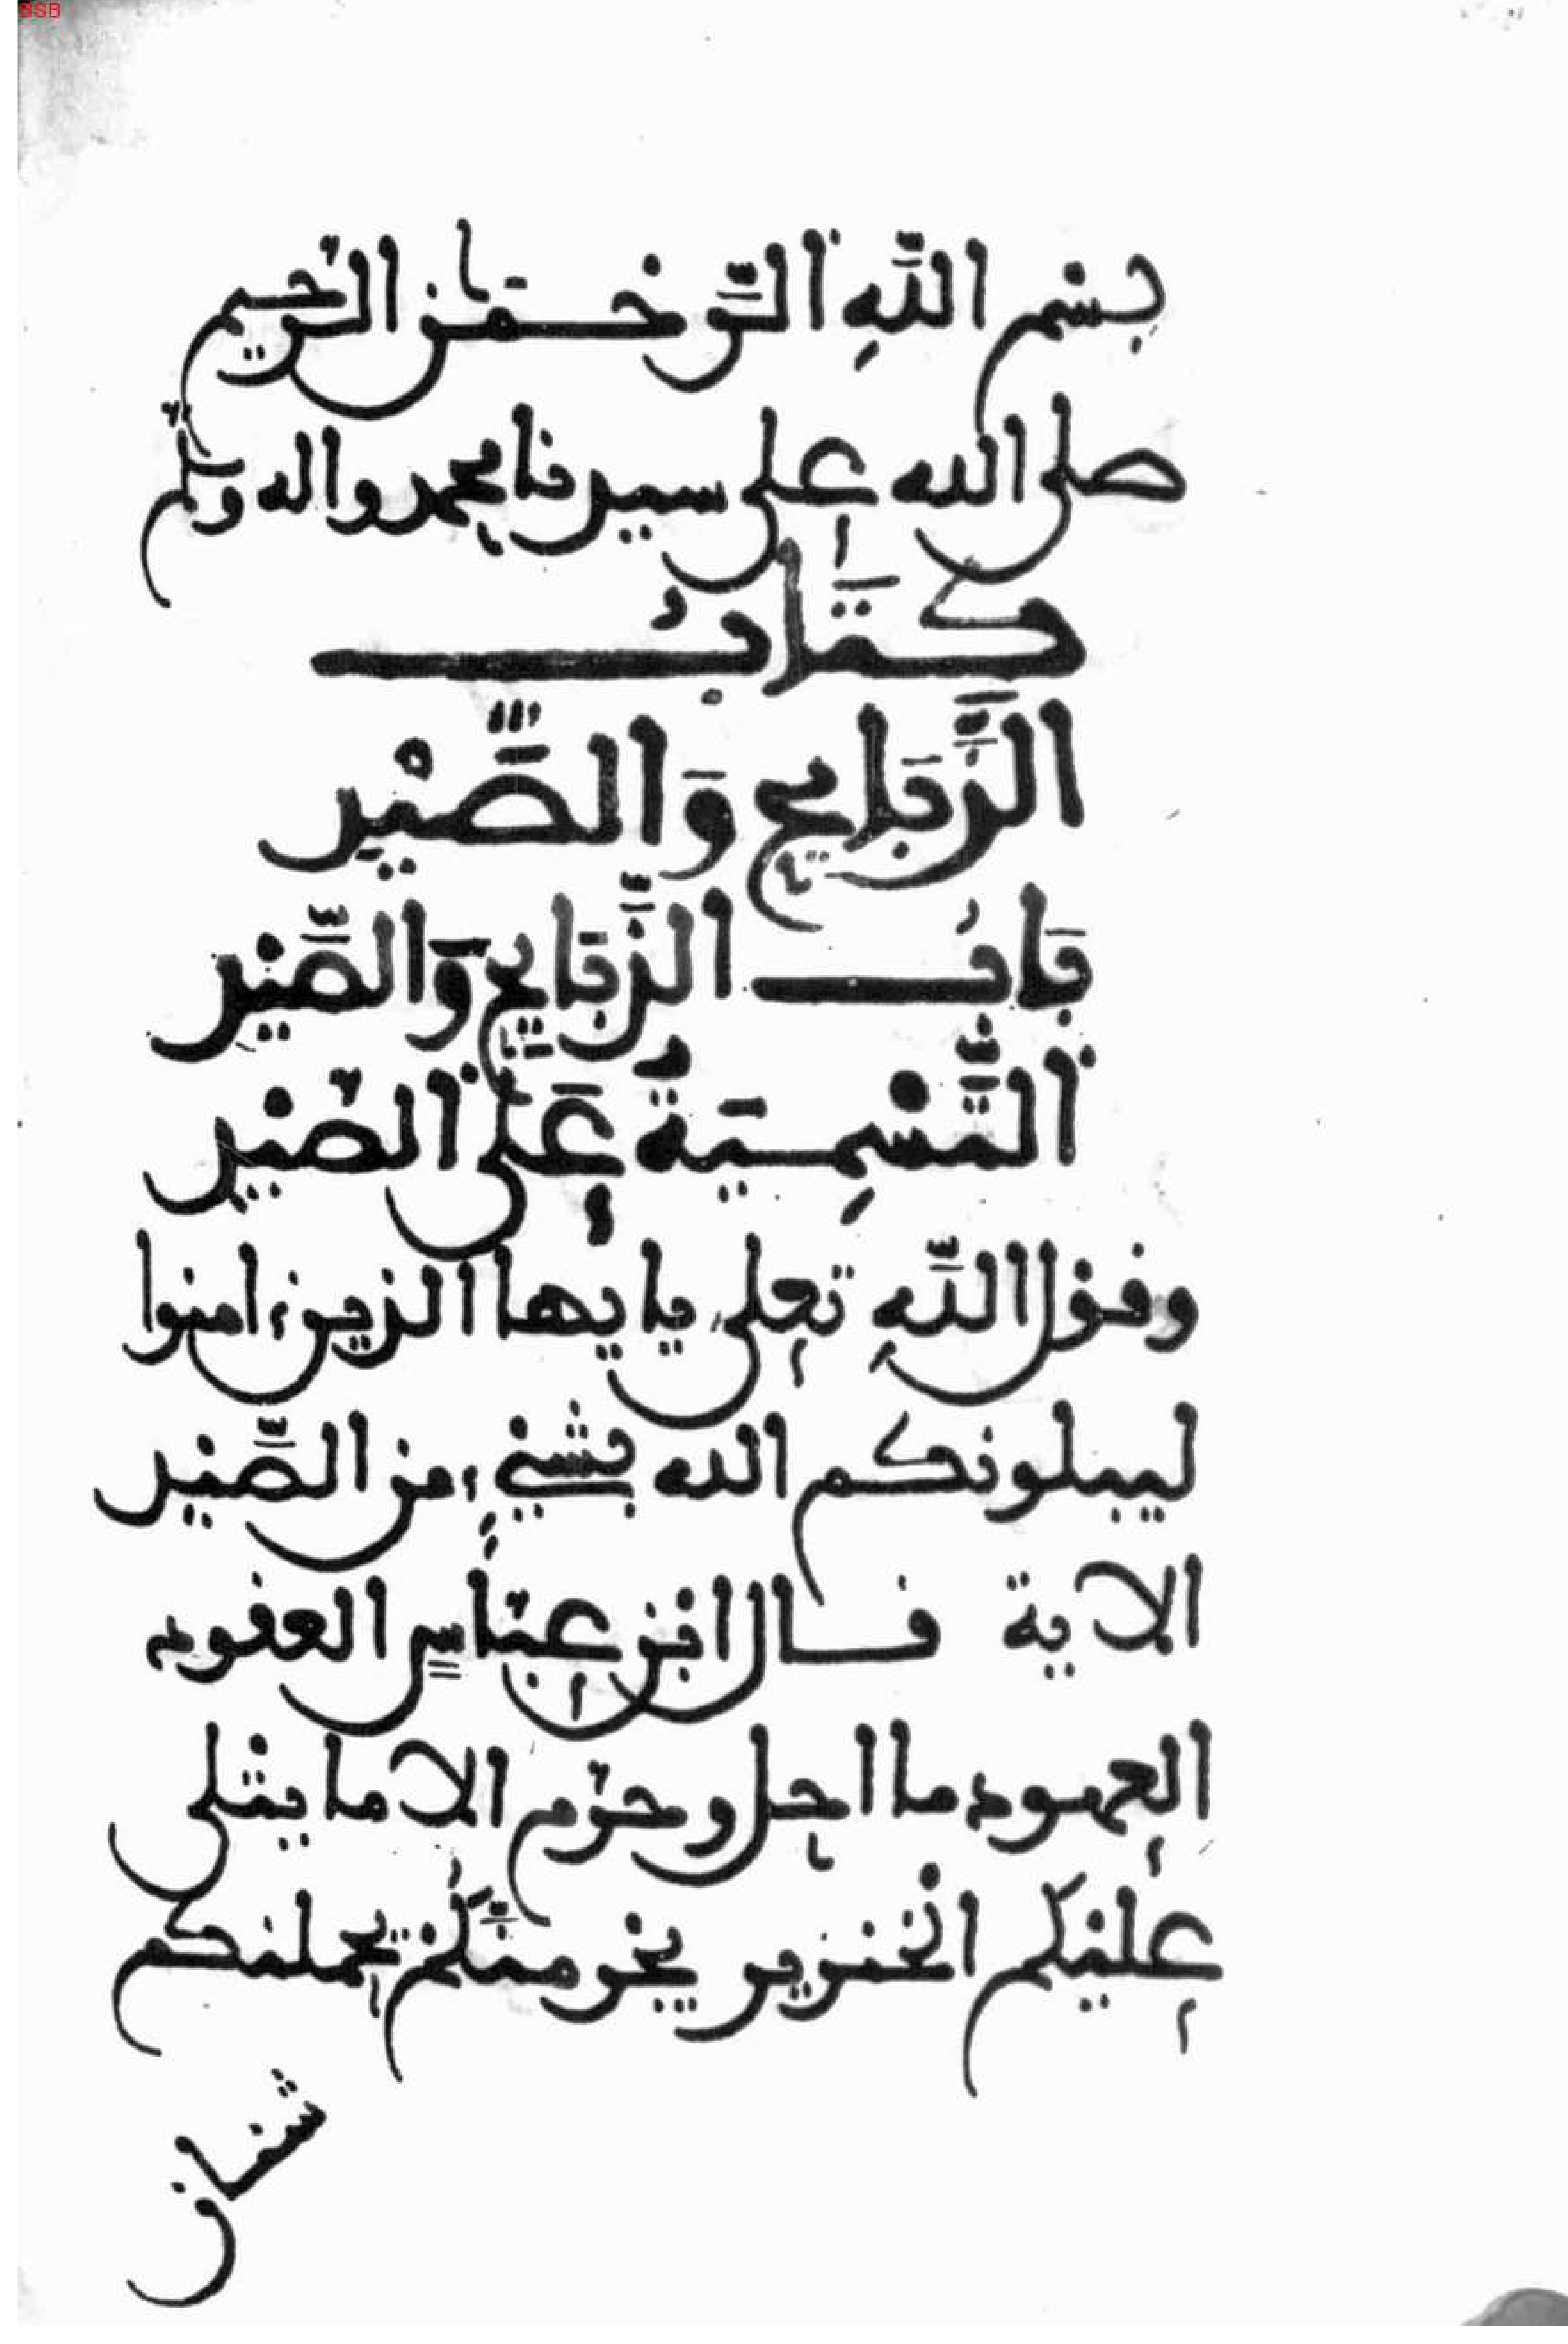 BSB
بِسْمِ اللَّهِ الرَّحْمَٰنِ الرَّحِيمِ
صلى الله على سيدنا محمد واله وسلم
كِتَابُ
الذَّبَايِحِ وَالصَّيْدِ
بَابُ الذَّبَايِحِ وَالصَّيْدِ
التَّسْمِيَةُ عَلَى الصَّيْدِ
وقول اللهِ تعلى يايها الذين ءامنوا
ليبلونكم الله بشيءٍ من الصَّيْد
الاية قال ابن عبّاسٍ العقود
العهود ما احل وحرّم الا ما يتْلى
عليْكم الخنزير يجرمنَّكُمْ يحملنكم
شنئان